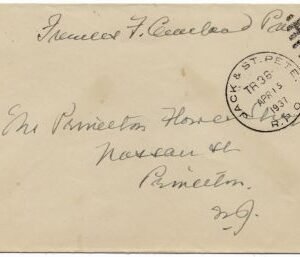 Frances F. Cleveland
JACK & ST. PETE.
TR 38
APR 13
1937
R.P.O.
The Princeton Flower
Nassau St
Princeton.
N.J.